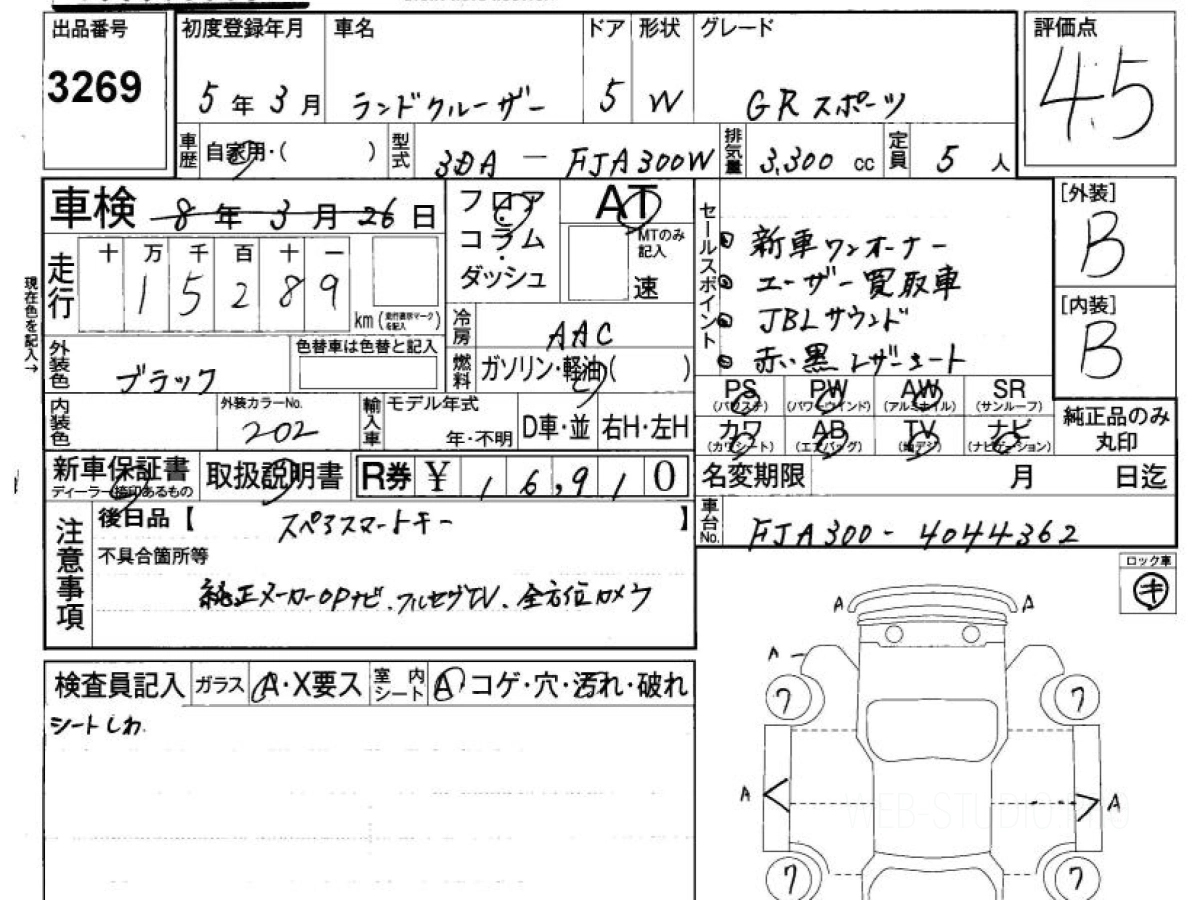 出品番号 初度登録年月 車名 ドア 形状 グレード 評価点
3269 5年3月 ランドクルーザー 5 W GRスポーツ 4.5
車歴 自家用・( ) 型式 3DA-FJA300W 排気量 3,300cc 定員 5人
車検 8年3月26日 フロア AT セールスポイント [外装]
コラム MTのみ記入 新車ワンオーナー B
ダッシュ 速 ユーザー買取車
走行 十万千百十一 JBLサウンド [内装]
15289 km 赤い黒レザーシート B
現在色を記入→
冷房 AAC
外装色 ブラック 色替車は色替と記入 燃料 ガソリン・軽油( )
PS PW AW SR
(パワステ) (パワーウインド) (アルミホイル) (サンルーフ)
内装色 外装カラーNo. 輸入車 モデル年式 D車・並 右H・左H カワ AB TV ナビ 純正品のみ
202 年・不明 (カワシート) (エアバッグ) (地デジ) (ナビゲーション) 丸印
新車保証書 取扱説明書 R券 ¥16,910 名変期限 月 日迄
ディーラー捺印あるもの
注意事項 後日品【スペアスマートキー】 車台No. FJA300-4044362
不具合箇所等 ロック車
純正メーカーOPナビ、フルセグTV、全方位カメラ キ
A A
A
検査員記入 ガラス A・X要ス 室内シート A コゲ・穴・汚れ・破れ
シートしわ 7 7
A A
WEB-STUDIO.PRO
7 7